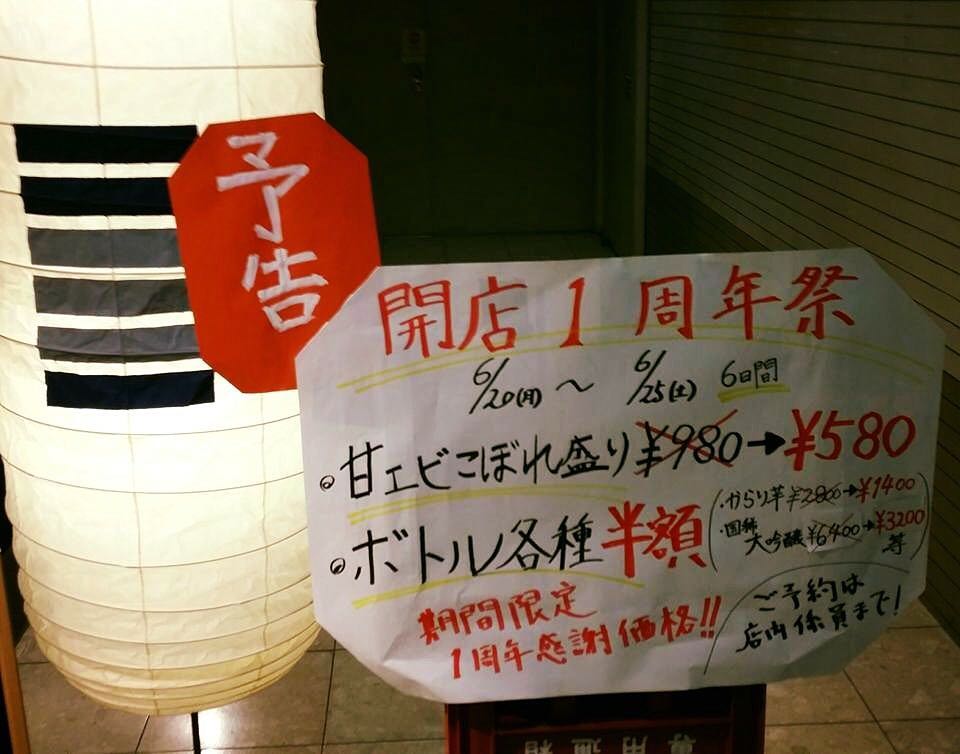 予告
開店1周年祭
6/20(月)～6/25(土) 6日間
甘エビこぼれ盛り ¥980→¥580
ボトル各種半額
(・からり芋 ¥2800→¥1400
・国稀 大吟醸 ¥6400→¥3200 等)
期間限定
1周年感謝価格!!
ご予約は
店内係員まで!
専用通箱